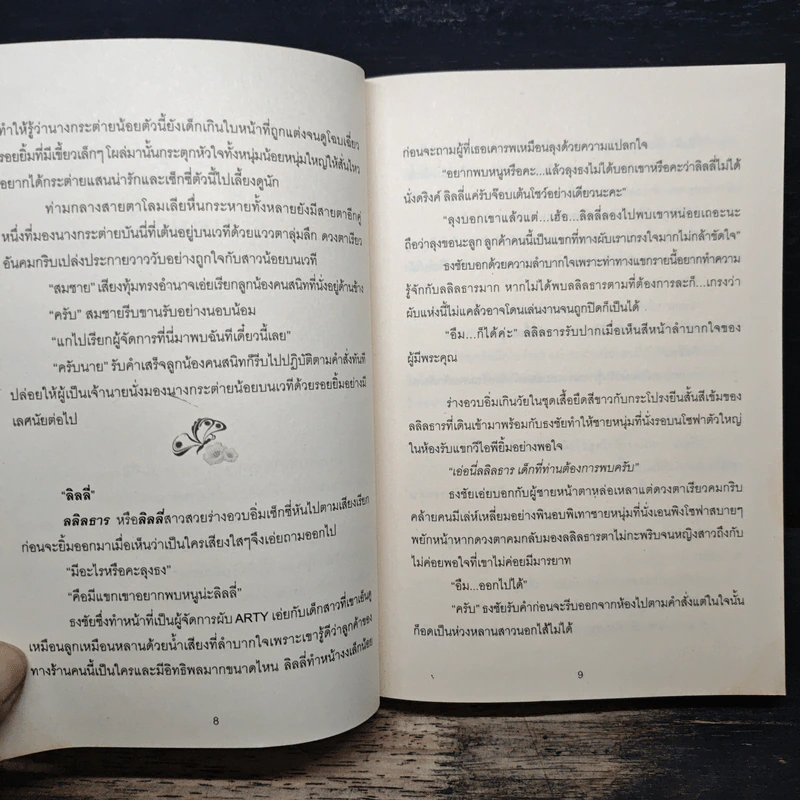 ทำให้รู้ว่านางกระต่ายน้อยตัวนี้ยังเด็กเกินใบหน้าที่ถูกแต่งจนดูโฉบเฉี่ยว
รอยยิ้มที่มีเขี้ยวเล็กๆ โผล่มานั้นกระตุกหัวใจทั้งหนุ่มน้อยหนุ่มใหญ่ให้สั่นไหว
อยากได้กระต่ายแสนน่ารักและเซ็กซี่ตัวนี้ไปเลี้ยงดูนัก
ท่ามกลางสายตาโลมเลียหื่นกระหายทั้งหลายยังมีสายตาอีกคู่
หนึ่งที่มองนางกระต่ายบันนี่ที่เต้นอยู่บนเวทีด้วยแววตาลุ่มลึก ดวงตาเรียว
อันคมกริบเปล่งประกายวาววับอย่างถูกใจกับสาวน้อยบนเวที
"สมชาย" เสียงทุ้มทรงอำนาจเอ่ยเรียกลูกน้องคนสนิทที่นั่งอยู่ด้านข้าง
"ครับ" สมชายรีบขานรับอย่างนอบน้อม
"แกไปเรียกผู้จัดการที่นี่มาพบฉันทีเดี๋ยวนี้เลย"
"ครับนาย" รับคำเสร็จลูกน้องคนสนิทก็รีบไปปฏิบัติตามคำสั่งทันที
ปล่อยให้ผู้เป็นเจ้านายนั่งมองนางกระต่ายน้อยบนเวทีด้วยรอยยิ้มอย่างมี
เลศนัยต่อไป
"ลิลลี่"
ลลิลธาร หรือลิลลี่สาวสวยร่างอวบอิ่มเซ็กซี่หันไปตามเสียงเรียก
ก่อนจะยิ้มออกมาเมื่อเห็นว่าเป็นใครเสียงใสๆจึงเอ่ยถามออกไป
"มีอะไรหรือคะลุงธง"
"คือมีแขกเขาอยากพบหนูน่ะลิลลี่"
ธงชัยซึ่งทำหน้าที่เป็นผู้จัดการผับ ARTY เอ่ยกับเด็กสาวที่เขาเอ็นดู
เหมือนลูกเหมือนหลานด้วยน้ำเสียงที่ลำบากใจเพราะเขารู้ดีว่าลูกค้าของ
ทางร้านคนนี้เป็นใครและมีอิทธิพลมากขนาดไหน ลิลลี่ทำหน้างงเล็กน้อย
8
ก่อนจะถามผู้ที่เธอเคารพเหมือนลุงด้วยความแปลกใจ
"อยากพบหนูหรือคะ...แล้วลุงธงไม่ได้บอกเขาหรือคะว่าลิลลี่ไม่ได้
นั่งดริงค์ ลิลลี่แค่รับจ๊อบเต้นโชว์อย่างเดียวนะคะ"
"ลุงบอกเขาแล้วแต่...เฮ้อ...ลิลลี่ลองไปพบเขาหน่อยเถอะนะ
ถือว่าลุงขอนะลูก ลูกค้าคนนี้เป็นแขกที่ทางผับเราเกรงใจมากไม่กล้าขัดใจ"
ธงชัยบอกด้วยความลำบากใจเพราะท่าทางแขกรายนี้อยากทำความ
รู้จักกับลลิลธารมาก หากไม่ได้พบลลิลธารตามที่ต้องการละก็...เกรงว่า
ผับแห่งนี้ไม่แคล้วอาจโดนเล่นงานจนถูกปิดก็เป็นได้
"อืม...ก็ได้ค่ะ" ลลิลธารรับปากเมื่อเห็นสีหน้าลำบากใจของ
ผู้มีพระคุณ
ร่างอวบอิ่มเกินวัยในชุดเสื้อยืดสีขาวกับกระโปรงยีนสั้นสีเข้มของ
ลลิลธารที่เดินเข้ามาพร้อมกับธงชัยทำให้ชายหนุ่มที่นั่งรอบนโซฟาตัวใหญ่
ในห้องรับแขกวีไอพียิ้มอย่างพอใจ
"เอ่อนี่ลลิลธาร เด็กที่ท่านต้องการพบครับ"
ธงชัยเอ่ยบอกกับผู้ชายหน้าตาหล่อเหลาแต่ดวงตาเรียวคมกริบ
คล้ายคนมีเล่ห์เหลี่ยมอย่างพินอบพิเทาชายหนุ่มที่นั่งเอนพิงโซฟาสบายๆ
พยักหน้าหากดวงตาคมกลับมองลลิลธารตาไม่กะพริบจนหญิงสาวถึงกับ
ไม่ค่อยพอใจที่เขาไม่ค่อยมีมารยาท
"อืม...ออกไปได้"
"ครับ" ธงชัยรับคำก่อนจะรีบออกจากห้องไปตามคำสั่งแต่ในใจนั้น
ก็อดเป็นห่วงหลานสาวนอกไส้ไม่ได้
9